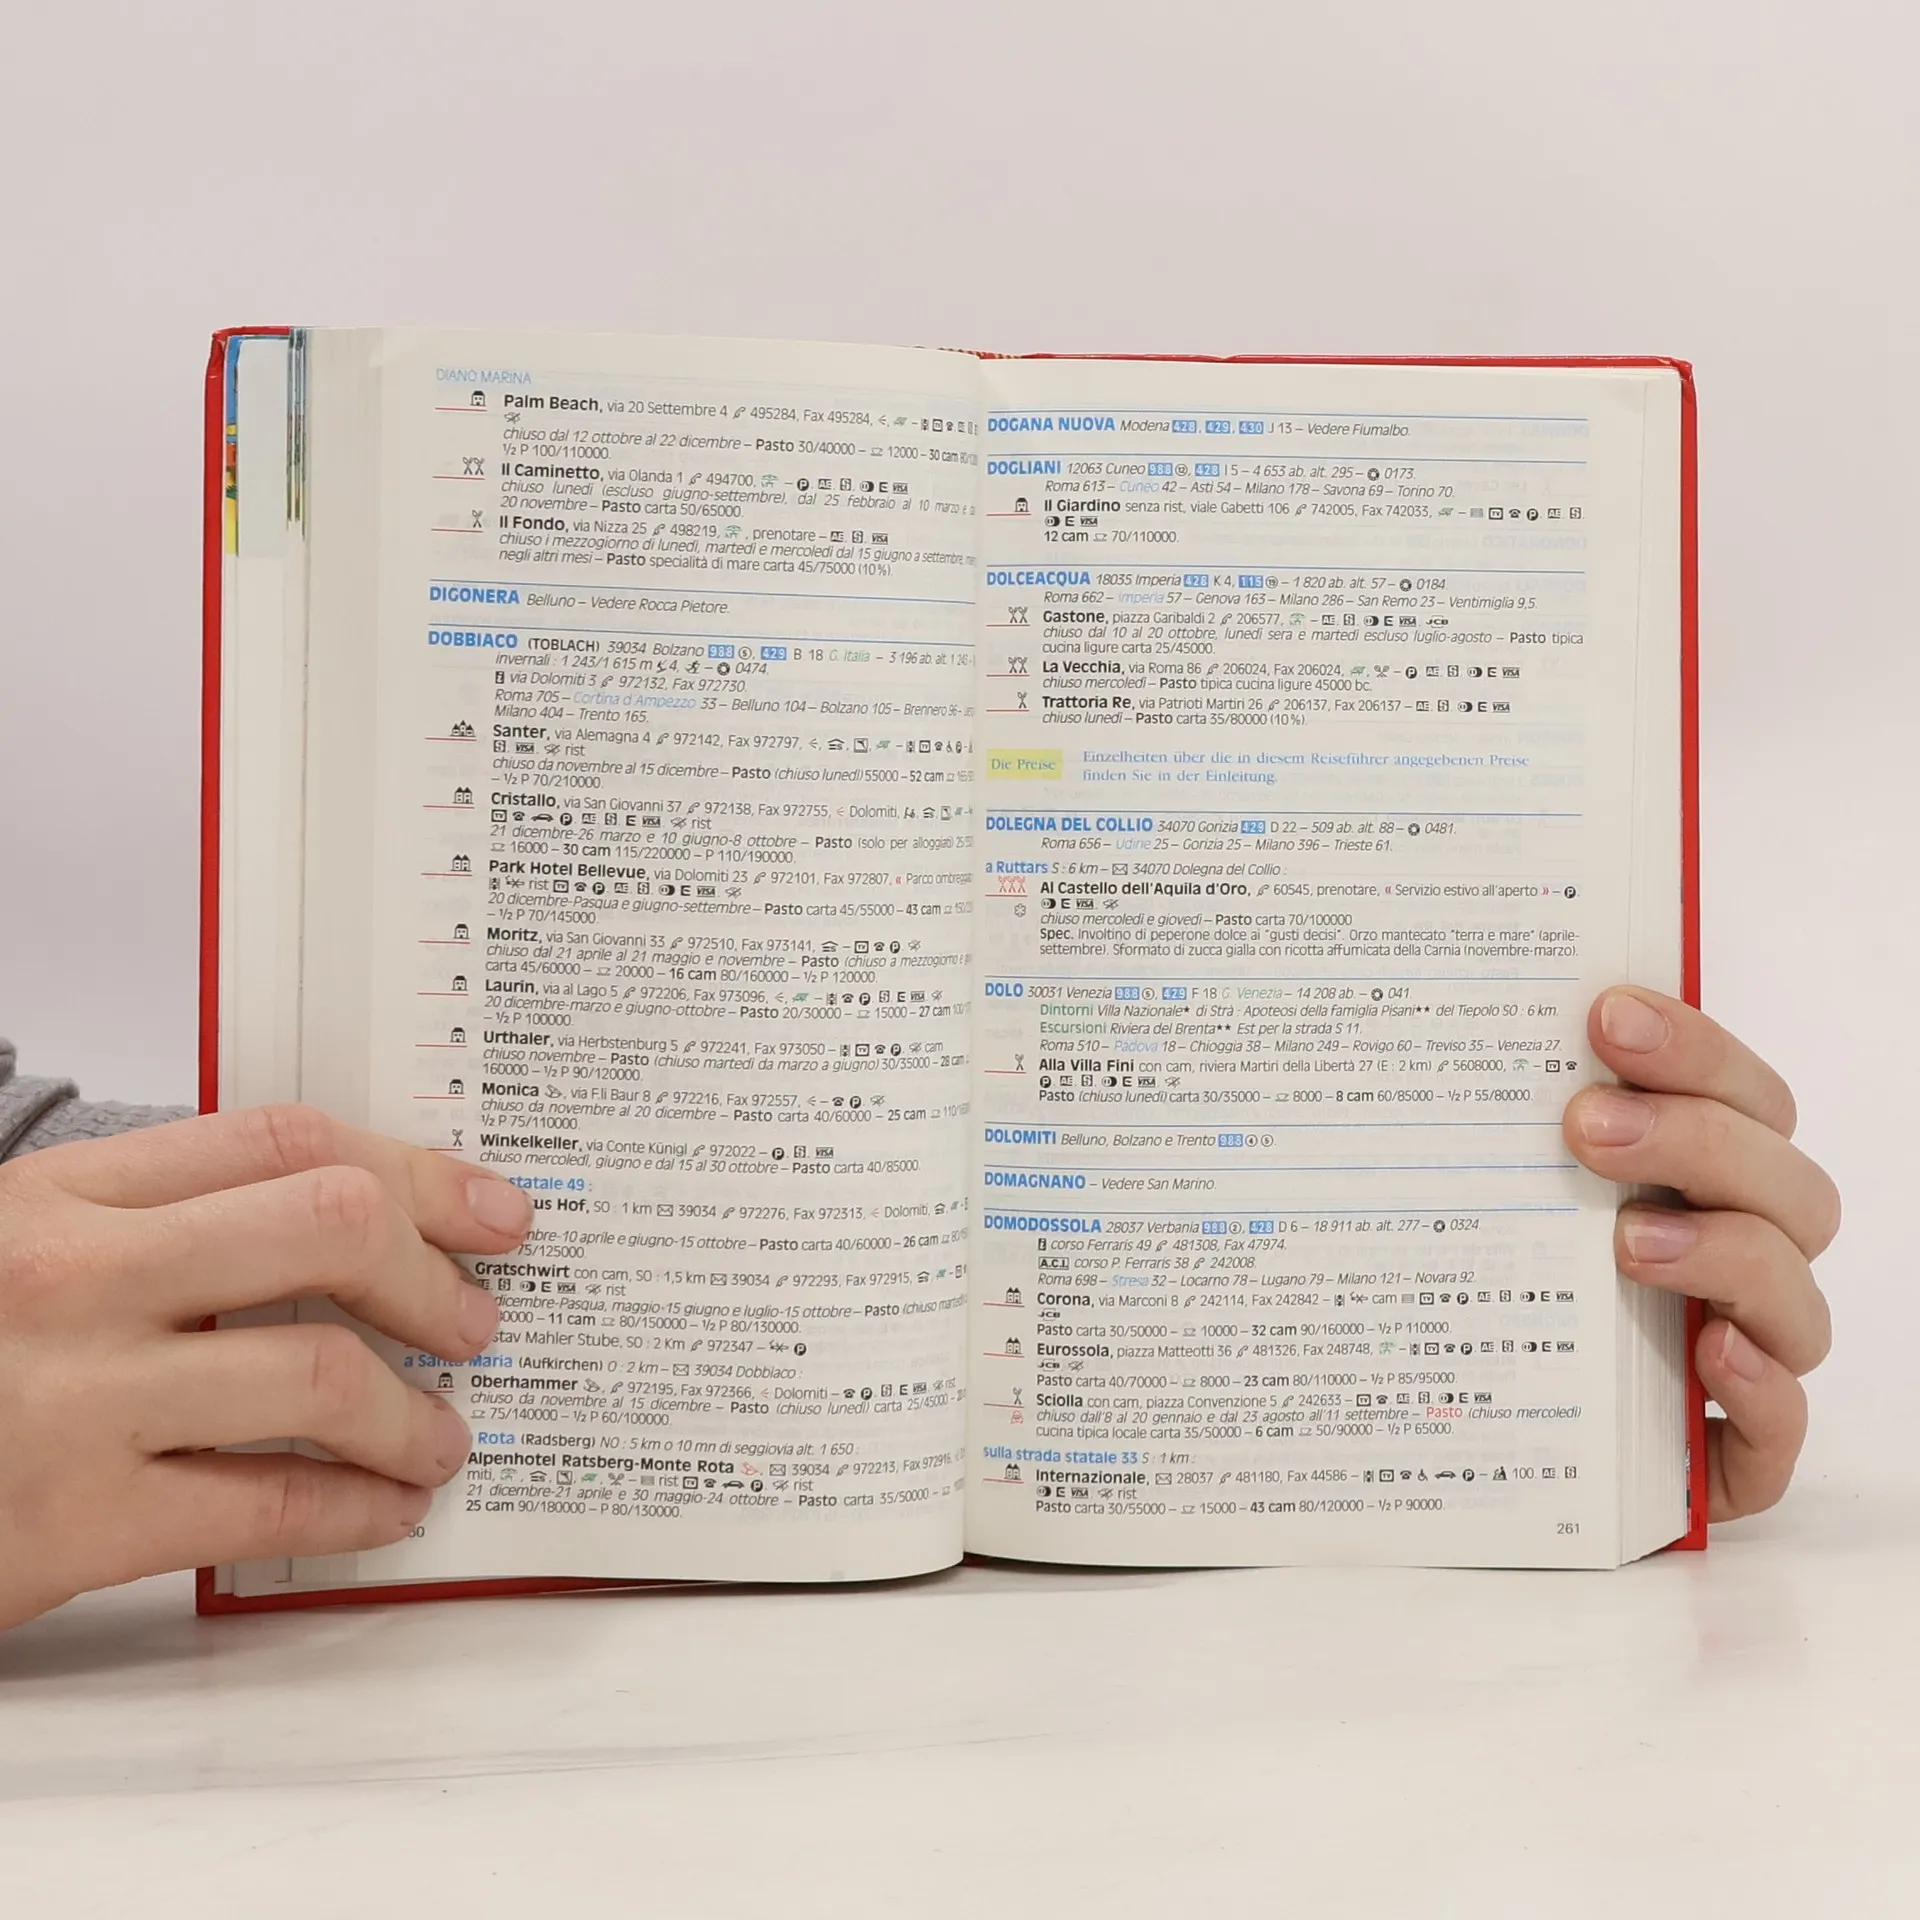 DIANO MARINA
Palm Beach, via 20 Settembre 4 495284, Fax 495284,
chiuso dal 12 ottobre al 22 dicembre – Pasto 30/40000 – 12000 – 30 cam
½ P 100/110000.
Il Caminetto, via Olanda 1 494700, – P. AE. E VISA
chiuso lunedì (escluso giugno-settembre), dal 25 febbraio al 10 marzo e
20 novembre – Pasto carta 50/65000.
Il Fondo, via Nizza 25 498219, , prenotare – AE. VISA
chiuso i mezzogiorno di lunedì, martedì e mercoledì dal 15 giugno a settembre,
negli altri mesi – Pasto specialità di mare carta 45/75000 (10%).
DIGONERA Belluno – Vedere Rocca Pietore.
DOBBIACO (TOBLACH) 39034 Bolzano 988 ⑤, 429 B 18 G. Italia – 3 196 ab. alt. 1 243 –
invernali : 1 243/1 615 m 4, – 0474.
via Dolomiti 3 972132, Fax 972730.
Roma 705 – Cortina d'Ampezzo 33 – Belluno 104 – Bolzano 105 – Brennero 96 –
Milano 404 – Trento 165.
Santer, via Alemagna 4 972142, Fax 972797,
VISA. rist
chiuso da novembre al 15 dicembre – Pasto (chiuso lunedì) 55000 – 52 cam
– ½ P 70/210000.
Cristallo, via San Giovanni 37 972138, Fax 972755, < Dolomiti,
TV P. AE. E VISA rist
21 dicembre-26 marzo e 10 giugno-8 ottobre – Pasto (solo per alloggiati)
16000 – 30 cam 115/220000 – P 110/190000.
Park Hotel Bellevue, via Dolomiti 23 972101, Fax 972807, « Parco ombreggiato
rist TV P. AE. E VISA.
20 dicembre-Pasqua e giugno-settembre – Pasto carta 45/55000 – 43 cam
– ½ P 70/145000.
Moritz, via San Giovanni 33 972510, Fax 973141, – TV P
chiuso dal 21 aprile al 21 maggio e novembre – Pasto (chiuso a mezzogiorno e
carta 45/60000 – 20000 – 16 cam 80/160000 – ½ P 120000.
Laurin, via al Lago 5 972206, Fax 973096, P. E VISA
20 dicembre-marzo e giugno-ottobre – Pasto 20/30000 – 15000 – 27 cam
– ½ P 100000.
Urthaler, via Herbstenburg 5 972241, Fax 973050 – TV P. cam
chiuso novembre – Pasto (chiuso martedì da marzo a giugno) 30/35000 – 28 cam
160000 – ½ P 90/120000.
Monica, via F.lli Baur 8 972216, Fax 972557, < – P.
chiuso da novembre al 20 dicembre – Pasto carta 40/60000 – 25 cam
½ P 75/110000.
Winkelkeller, via Conte Künigl 972022 – P. VISA
chiuso mercoledì, giugno e dal 15 al 30 ottobre – Pasto carta 40/85000.
statale 49 :
us Hof, SO : 1 km 39034 972276, Fax 972313, < Dolomiti,
mbre-10 aprile e giugno-15 ottobre – Pasto carta 40/60000 – 26 cam
75/125000.
Gratschwirt con cam, SO : 1,5 km 39034 972293, Fax 972915,
E VISA. rist
dicembre-Pasqua, maggio-15 giugno e luglio-15 ottobre – Pasto (chiuso martedì)
0000 – 11 cam 80/150000 – ½ P 80/130000.
stav Mahler Stube, SO : 2 Km 972347 – P
a Santa Maria (Aufkirchen) O : 2 km – 39034 Dobbiaco :
Oberhammer, 972195, Fax 972366, < Dolomiti – P. E VISA. rist
chiuso da novembre al 15 dicembre – Pasto (chiuso lunedì) carta 25/45000 –
75/140000 – ½ P 60/100000.
Rota (Radsberg) NO : 5 km o 10 mn di seggiovia alt. 1 650 :
Alpenhotel Ratsberg-Monte Rota, 39034 972213, Fax 972916,
miti, – rist TV P. rist
21 dicembre-21 aprile e 30 maggio-24 ottobre – Pasto carta 35/50000 –
25 cam 90/180000 – P 80/130000.
60
DOGANA NUOVA Modena 428, 429, 430 J 13 – Vedere Fiumalbo.
DOGLIANI 12063 Cuneo 988 ⑫, 428 I 5 – 4 653 ab. alt. 295 – 0173.
Roma 613 – Cuneo 42 – Asti 54 – Milano 178 – Savona 69 – Torino 70.
Il Giardino senza rist, viale Gabetti 106 742005, Fax 742033, – TV P. AE.
E VISA
12 cam 70/110000.
DOLCEACQUA 18035 Imperia 428 K 4, 115 ⑲ – 1 820 ab. alt. 57 – 0184.
Roma 662 – Imperia 57 – Genova 163 – Milano 286 – San Remo 23 – Ventimiglia 9,5.
Gastone, piazza Garibaldi 2 206577, – AE. E VISA. JCB
chiuso dal 10 al 20 ottobre, lunedì sera e martedì escluso luglio-agosto – Pasto tipica
cucina ligure carta 25/45000.
La Vecchia, via Roma 86 206024, Fax 206024, – P AE. E VISA
chiuso mercoledì – Pasto tipica cucina ligure 45000 bc.
Trattoria Re, via Patrioti Martiri 26 206137, Fax 206137 – AE. E VISA
chiuso lunedì – Pasto carta 35/80000 (10%).
Die Preise
Einzelheiten über die in diesem Reiseführer angegebenen Preise
finden Sie in der Einleitung.
DOLEGNA DEL COLLIO 34070 Gorizia 429 D 22 – 509 ab. alt. 88 – 0481.
Roma 656 – Udine 25 – Gorizia 25 – Milano 396 – Trieste 61.
a Ruttars S : 6 km – 34070 Dolegna del Collio :
Al Castello dell'Aquila d'Oro, 60545, prenotare, « Servizio estivo all'aperto » – P.
E VISA.
chiuso mercoledì e giovedì – Pasto carta 70/100000
Spec. Involtino di peperone dolce ai "gusti decisi". Orzo mantecato "terra e mare" (aprile-
settembre). Sformato di zucca gialla con ricotta affumicata della Carnia (novembre-marzo).
DOLO 30031 Venezia 988 ⑤, 429 F 18 G. Venezia – 14 208 ab. – 041.
Dintorni Villa Nazionale★ di Strà : Apoteosi della famiglia Pisani★★ del Tiepolo SO : 6 km.
Escursioni Riviera del Brenta★★ Est per la strada S 11.
Roma 510 – Padova 18 – Chioggia 38 – Milano 249 – Rovigo 60 – Treviso 35 – Venezia 27.
Alla Villa Fini con cam, riviera Martiri della Libertà 27 (E : 2 km) 5608000, – TV
P. AE. E VISA
Pasto (chiuso lunedì) carta 30/35000 – 8000 – 8 cam 60/85000 – ½ P 55/80000.
DOLOMITI Belluno, Bolzano e Trento 988 ④ ⑤.
DOMAGNANO – Vedere San Marino.
DOMODOSSOLA 28037 Verbania 988 ②, 428 D 6 – 18 911 ab. alt. 277 – 0324.
corso Ferraris 49 481308, Fax 47974.
A.C.I. corso P. Ferraris 38 242008.
Roma 698 – Stresa 32 – Locarno 78 – Lugano 79 – Milano 121 – Novara 92.
Corona, via Marconi 8 242114, Fax 242842 – cam TV P. AE. E VISA.
JCB
Pasto carta 30/50000 – 10000 – 32 cam 90/160000 – ½ P 110000.
Eurossola, piazza Matteotti 36 481326, Fax 248748, – TV P. AE. E VISA.
JCB
Pasto carta 40/70000 – 8000 – 23 cam 80/110000 – ½ P 85/95000.
Sciolla con cam, piazza Convenzione 5 242633 – TV AE. E VISA
chiuso dall'8 al 20 gennaio e dal 23 agosto all'11 settembre – Pasto (chiuso mercoledì)
cucina tipica locale carta 35/50000 – 6 cam 50/90000 – ½ P 65000.
sulla strada statale 33 S : 1 km :
Internazionale, 28037 481180, Fax 44586 – TV P – 100. AE.
E VISA rist
Pasto carta 30/55000 – 15000 – 43 cam 80/120000 – ½ P 90000.
261